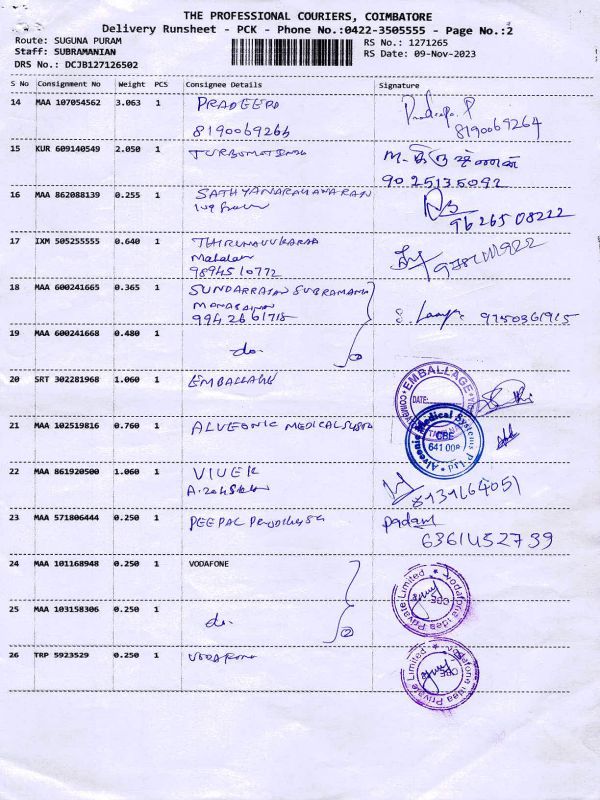 THE PROFESSIONAL COURIERS, COIMBATORE
Delivery Runsheet - PCK - Phone No.:0422-3505555 - Page No.:2
Route: SUGUNA PURAM RS No.: 1271265
Staff: SUBRAMANIAN RS Date: 09-Nov-2023
DRS No.: DCJB127126502
S No Consignment No Weight PCS Consignee Details Signature
14 MAA 107054562 3.063 1 PRADEEPA
8190069264 8190069264
15 KUR 609140549 2.050 1
9025135092
16 MAA 862088139 0.255 1 SATHYANARAYANARAN
9626508222
17 IXM 505255555 0.640 1
9894510772
18 MAA 600241665 0.365 1 SUNDARRAJAN SUBRAMANI
9942661718 9750361915
19 MAA 600241668 0.480 1 do. ②
20 SRT 302281968 1.060 1 EMBALLAGE EMBALLAGE DATE:
21 MAA 102519816 0.760 1 ALVEONIC MEDICAL Alveonic Medical Systems P. Ltd. CBE
22 MAA 861920500 1.060 1 VIVEK
8131664051
23 MAA 571806444 0.250 1 PEEPAL
6361452739
24 MAA 101168948 0.250 1 VODAFONE Vodafone Idea Private Limited CBE
25 MAA 103158306 0.250 1 do. ②
26 TRP 5923529 0.250 1 VODAFONE Vodafone Idea Private Limited CBE